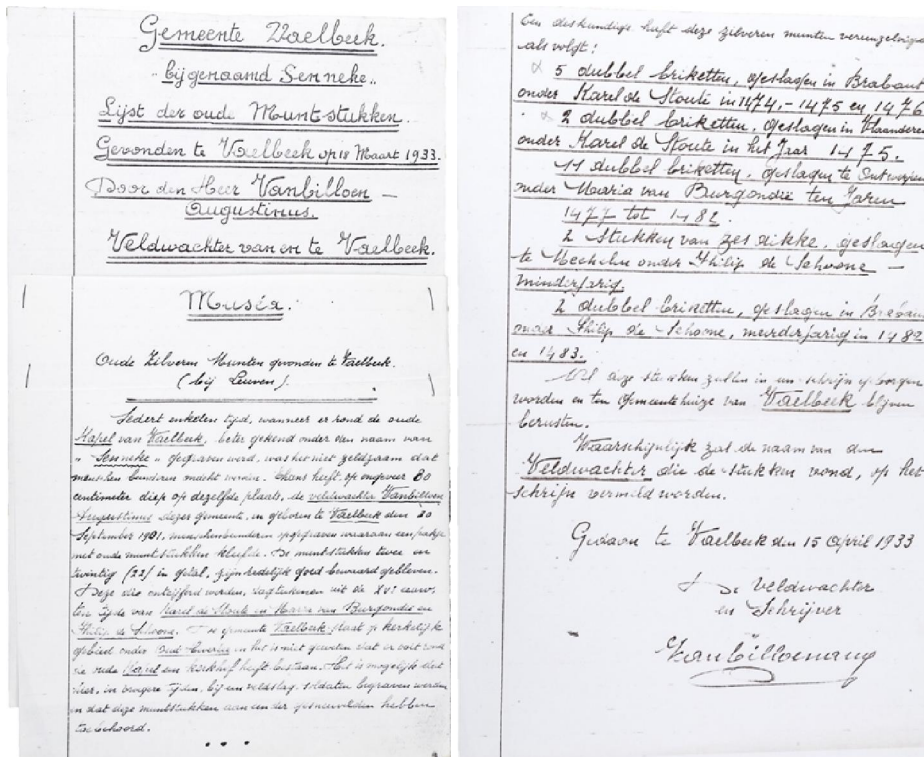 Gemeente Vaelbeek.
"bijgenaamd Senneke"
Lijst der oude Munt-stukken.
Gevonden te Vaelbeek op 18 Maart 1933.
Door den Heer Vanbilloen -
Augustinus.
Veldwachter van en te Vaelbeek.
Muséa.
Oude Zilveren Munten gevonden te Vaelbeek.
(bij Leuven).
Sedert enkelen tijd, wanneer er rond de oude
Kapel van Vaelbeek, beter gekend onder den naam van
"Senneke" gegraven werd, was het niet zeldzaam dat
menschen beenderen ontdekt werden. Thans heeft, op ongeveer 80
centimeter diep op dezelfde plaats, de veldwachter Vanbilloen
Augustinus dezer gemeente, en geboren te Vaelbeek den 20
September 1901, menschenbeenderen opgegraven waaraan een pakje
met oude muntstukken kleefde. De muntstukken twee en
twintig (22) in getal, zijn redelijk goed bewaard gebleven.
Deze die ontcijferd werden, dagteekenen uit de XVe eeuw,
ten tijde van Karel de Stoute en Maria van Burgondië en
Philip de Schoone. De gemeente Vaelbeek staat op kerkelijk
gebied onder Oud-Heverlee en het is niet geweten dat er ooit rond
de oude Kapel een kerkhof heeft bestaan. Het is mogelijk dat
hier, in vroegere tijden, bij een veldslag, soldaten begraven werden
en dat deze muntstukken aan een der gesneuvelden hebben
toebehoord.
Een deskundige heeft deze zilveren munten vereenzelvigd
als volgt:
5 dubbel briketten, geslagen in Brabant
onder Karel de Stoute in 1474,- 1475 en 1476.
2 dubbel briketten, geslagen in Vlaanderen
onder Karel de Stoute in het Jaar 1475.
11 dubbel briketten, geslagen te Antwerpen
onder Maria van Burgondië ten Jaren
1477 tot 1482.
2 stukken van zes dikke, geslagen
te Mechelen onder Philip de Schoone -
minderjarig.
2 dubbel briketten, geslagen in Braban
onder Philip de Schoone, minderjarig in 1482
en 1483.
Al deze stukken zullen in een schrijn geborgen
worden en ten gemeentehuize van Vaelbeek blijven
berusten.
Waarschijnlijk zal de naam van den
Veldwachter die de stukken vond, op het
schrijn vermeld worden.
Gedaan te Vaelbeek den 15 April 1933
De Veldwachter
en Schrijver
Vanbilloen Aug